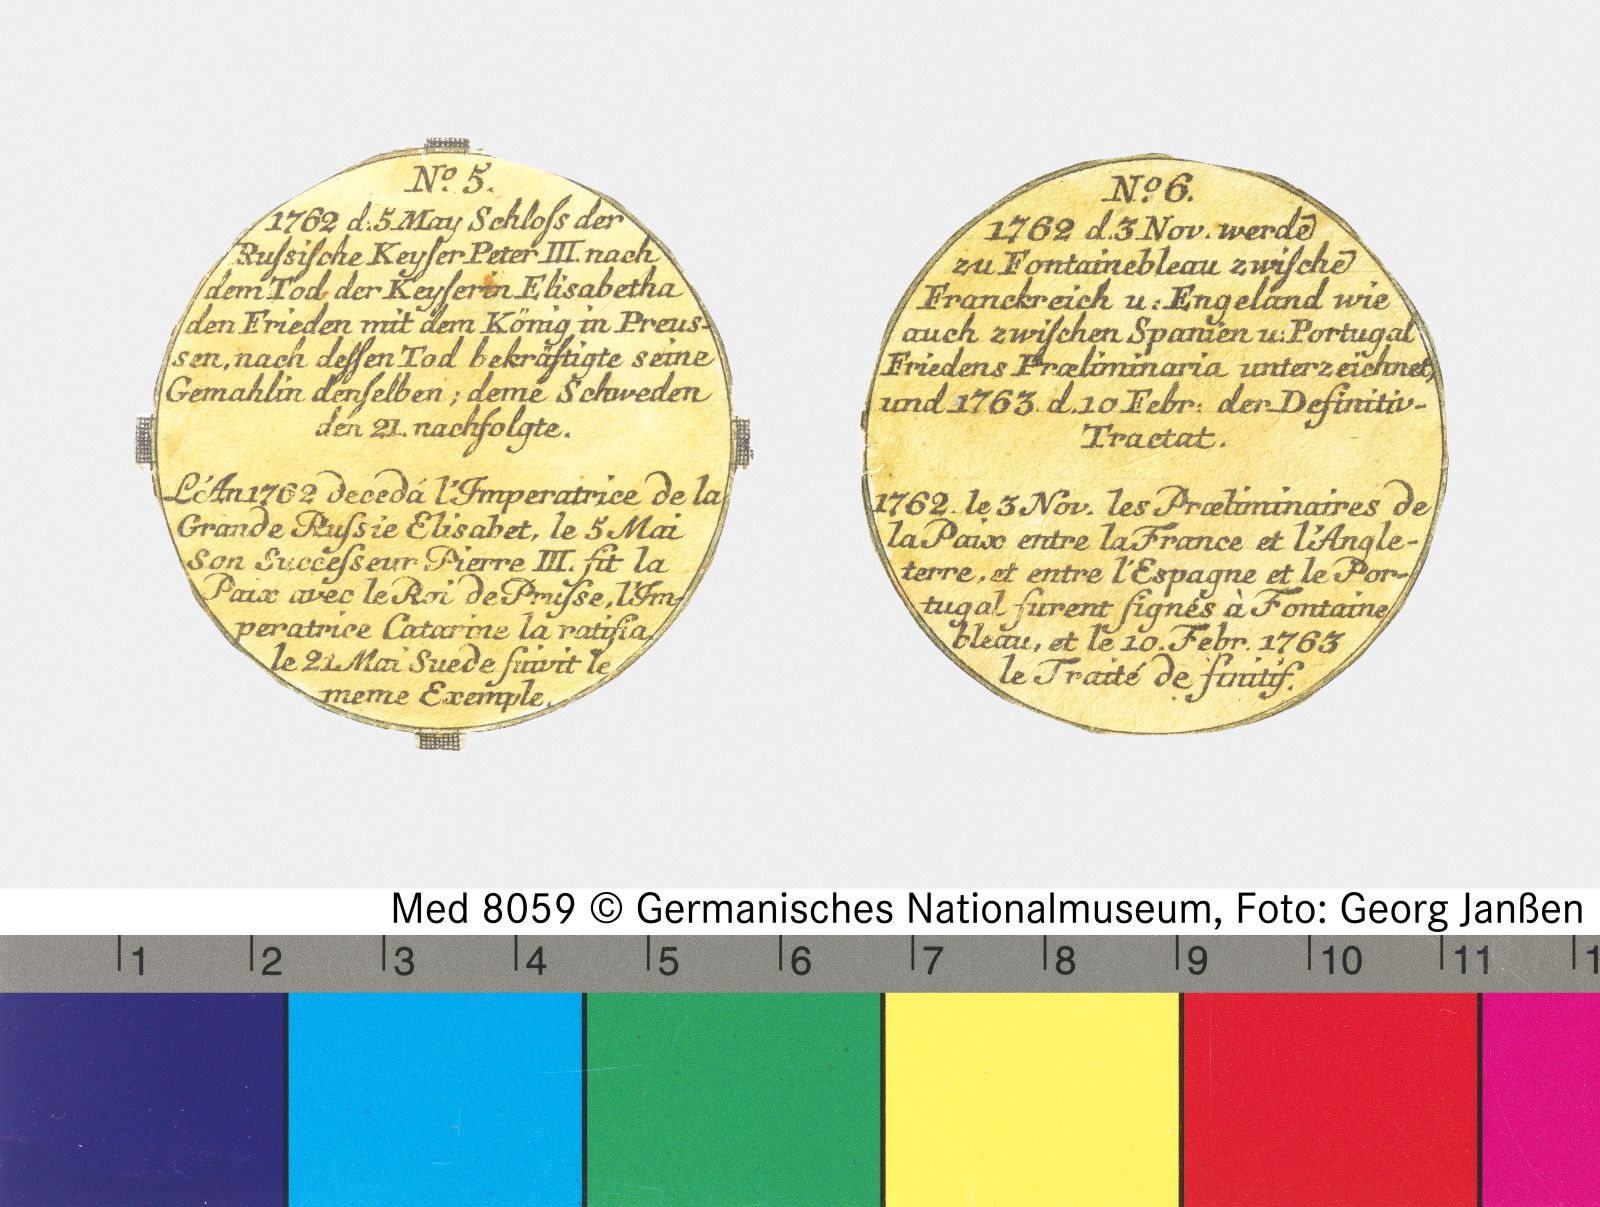 Nº 5.
1762 d. 5 May Schloſs der
Ruſsiſche Keyſer Peter III. nach
dem Tod der Keyſerin Elisabetha
den Frieden mit dem König in Preus-
sen, nach deſſen Tod bekräftigte seine
Gemahlin denſelben ; deme Schweden
den 21. nachfolgte.
L'An 1762 decedá l'Imperatrice de la
Grande Ruſsie Elisabet, le 5 Mai
Son Succeſseur Pierre III. fit la
Paix avec le Roi de Pruſse, l'Im-
peratrice Catarine la ratifia,
le 21 Mai Suede ſuivit le
meme Exemple.
Nº 6.
1762 d. 3 Nov. werdē
zu Fontainebleau zwiſchē
Franckreich u: Engeland wie
auch zwiſchen Spanien u: Portugal
Friedens Præliminaria unterzeichnet,
und 1763 d. 10 Febr: der Definitiv-
Tractat.
1762. le 3 Nov. les Præliminaires de
la Paix entre la France et l'Angle-
terre, et entre l'Espagne et le Por-
tugal furent ſignés à Fontaine
bleau, et le 10. Febr. 1763
le Traité de finitif.
Med 8059 © Germanisches Nationalmuseum, Foto: Georg Janßen
1 2 3 4 5 6 7 8 9 10 11 1